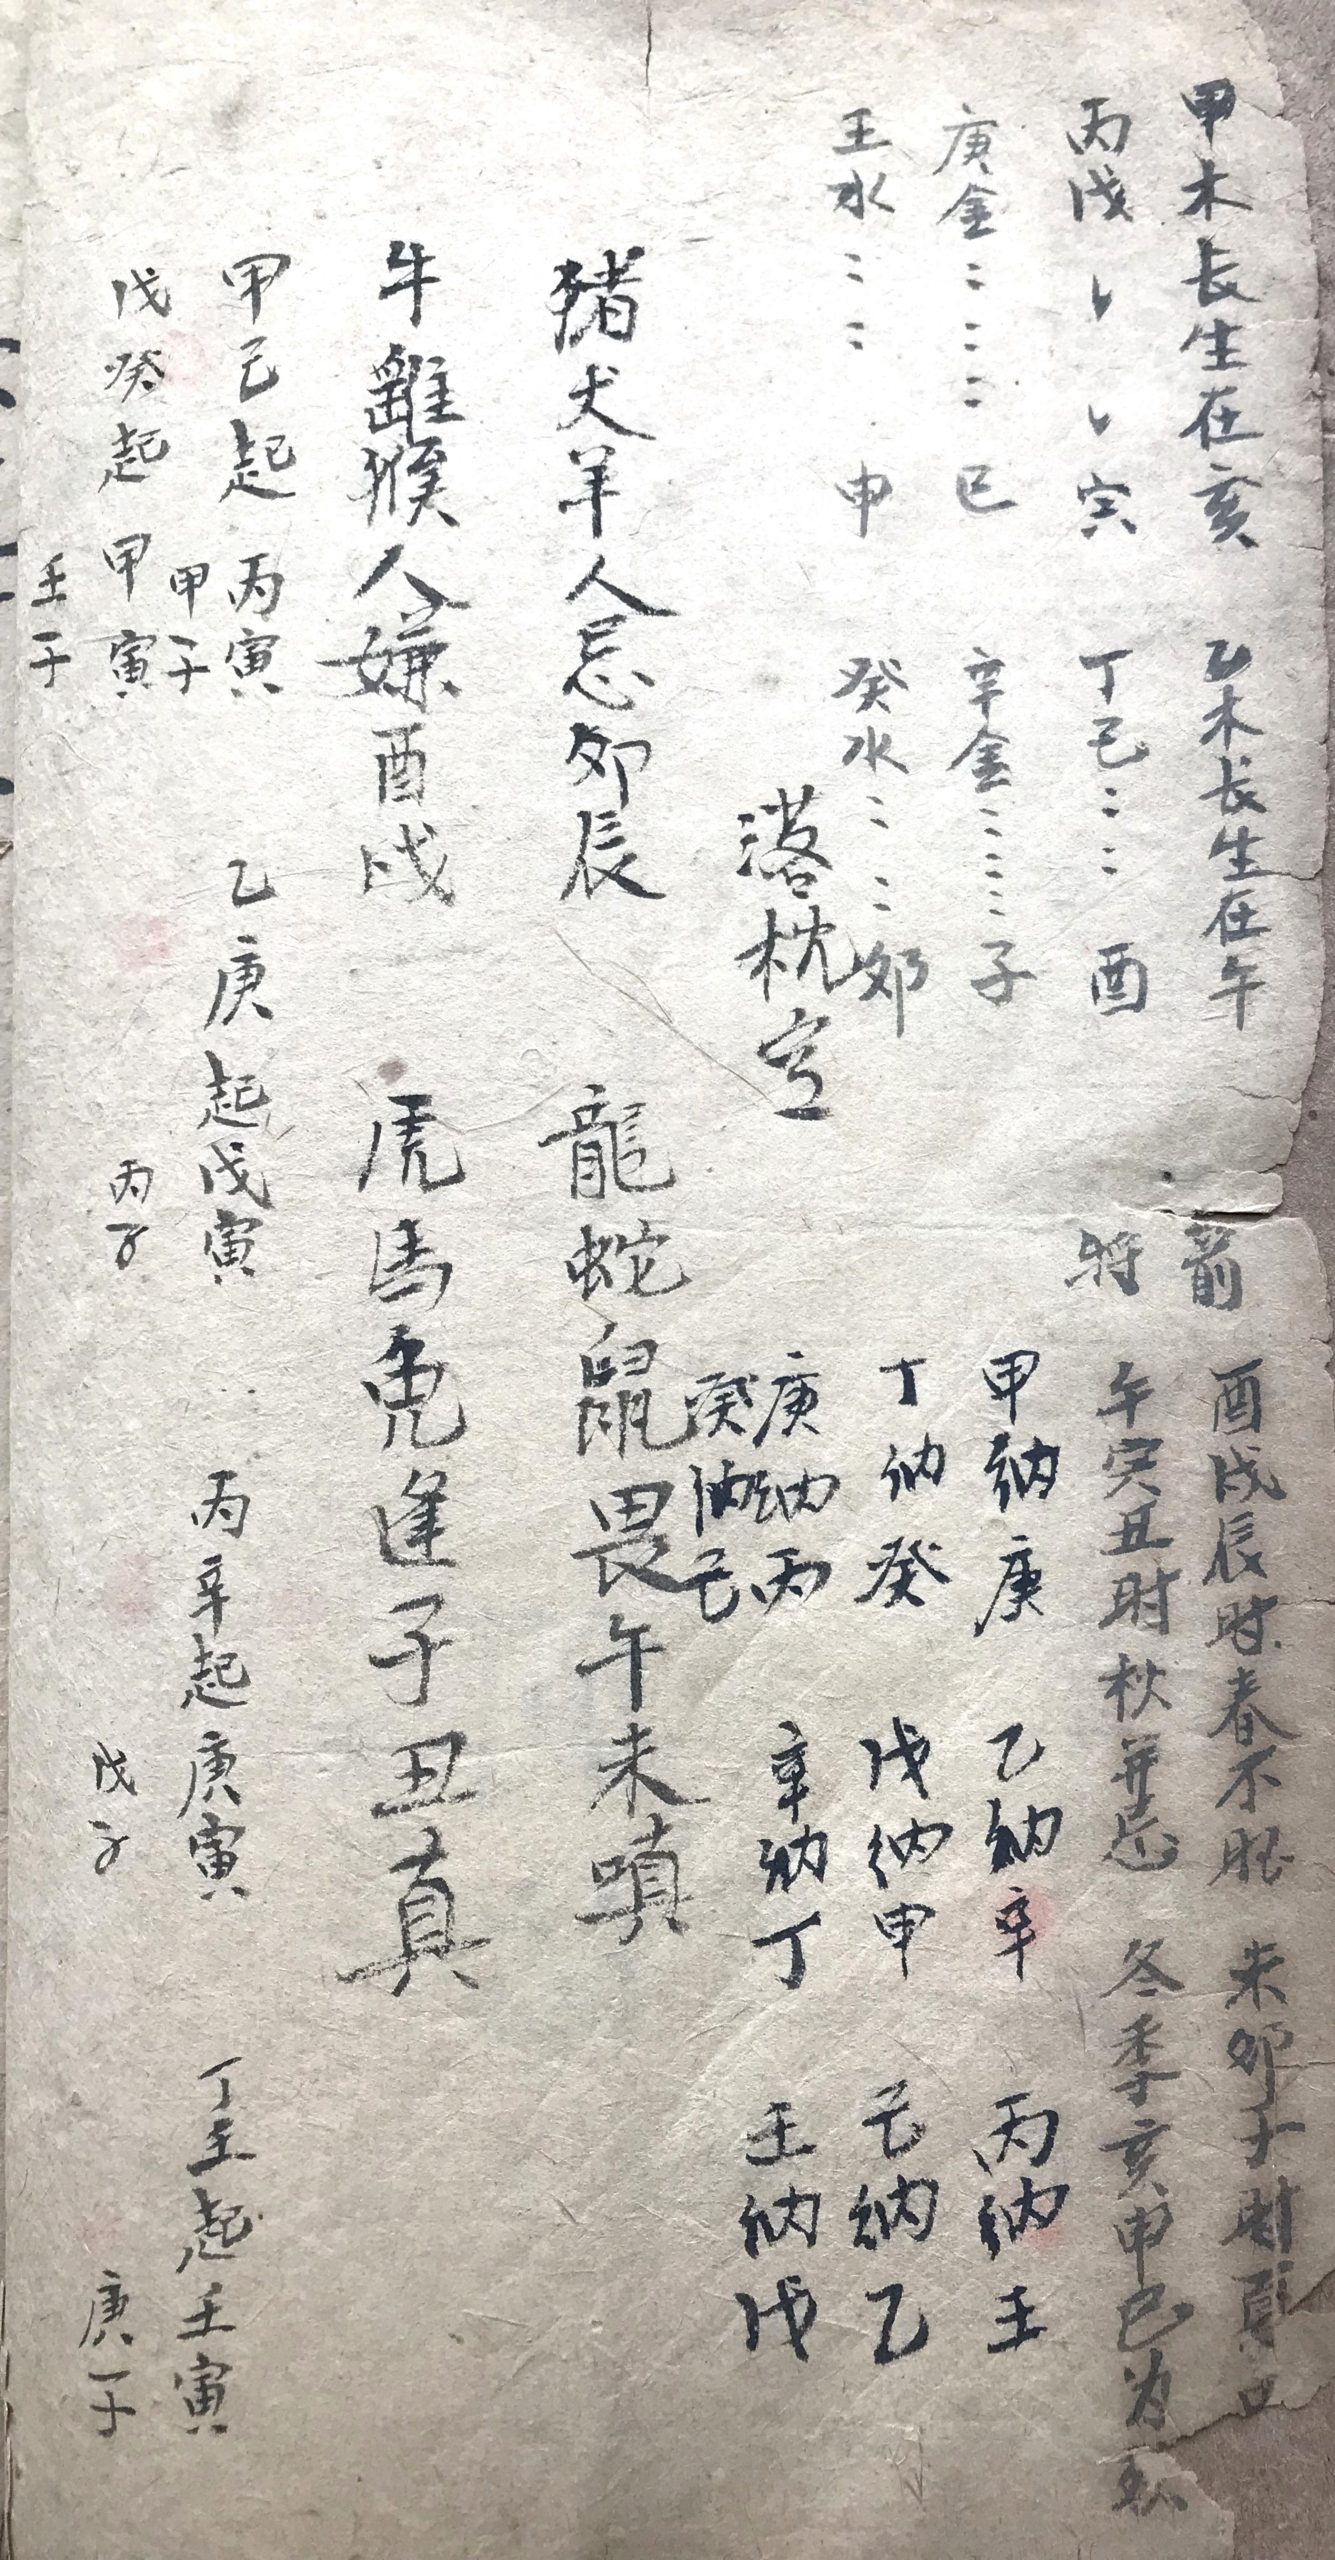 甲木长生在亥　乙木长生在午
丙戊〻〻寅　丁己〻〻酉
庚金〻〻〻巳　辛金〻〻〻子
王水〻〻申　癸水〻〻卯
箭　酉戌辰时春不旺　未卯子时夏
将　午寅丑时秋并忌　冬季亥申巳为
甲纳庚　乙纳辛　丙纳壬
丁纳癸　戊纳甲　己纳乙
庚纳丙　辛纳丁　壬纳戊
癸纳己
落枕
猪犬羊人忌卯辰　龍蛇鼠畏午未嗔
牛雞猴人嫌酉戌　虎馬兔逢子丑真
甲己起丙寅　乙庚起戊寅　丙辛起庚寅　丁壬起壬寅
甲子　丙子　戊子　庚子
戊癸起甲寅
壬子